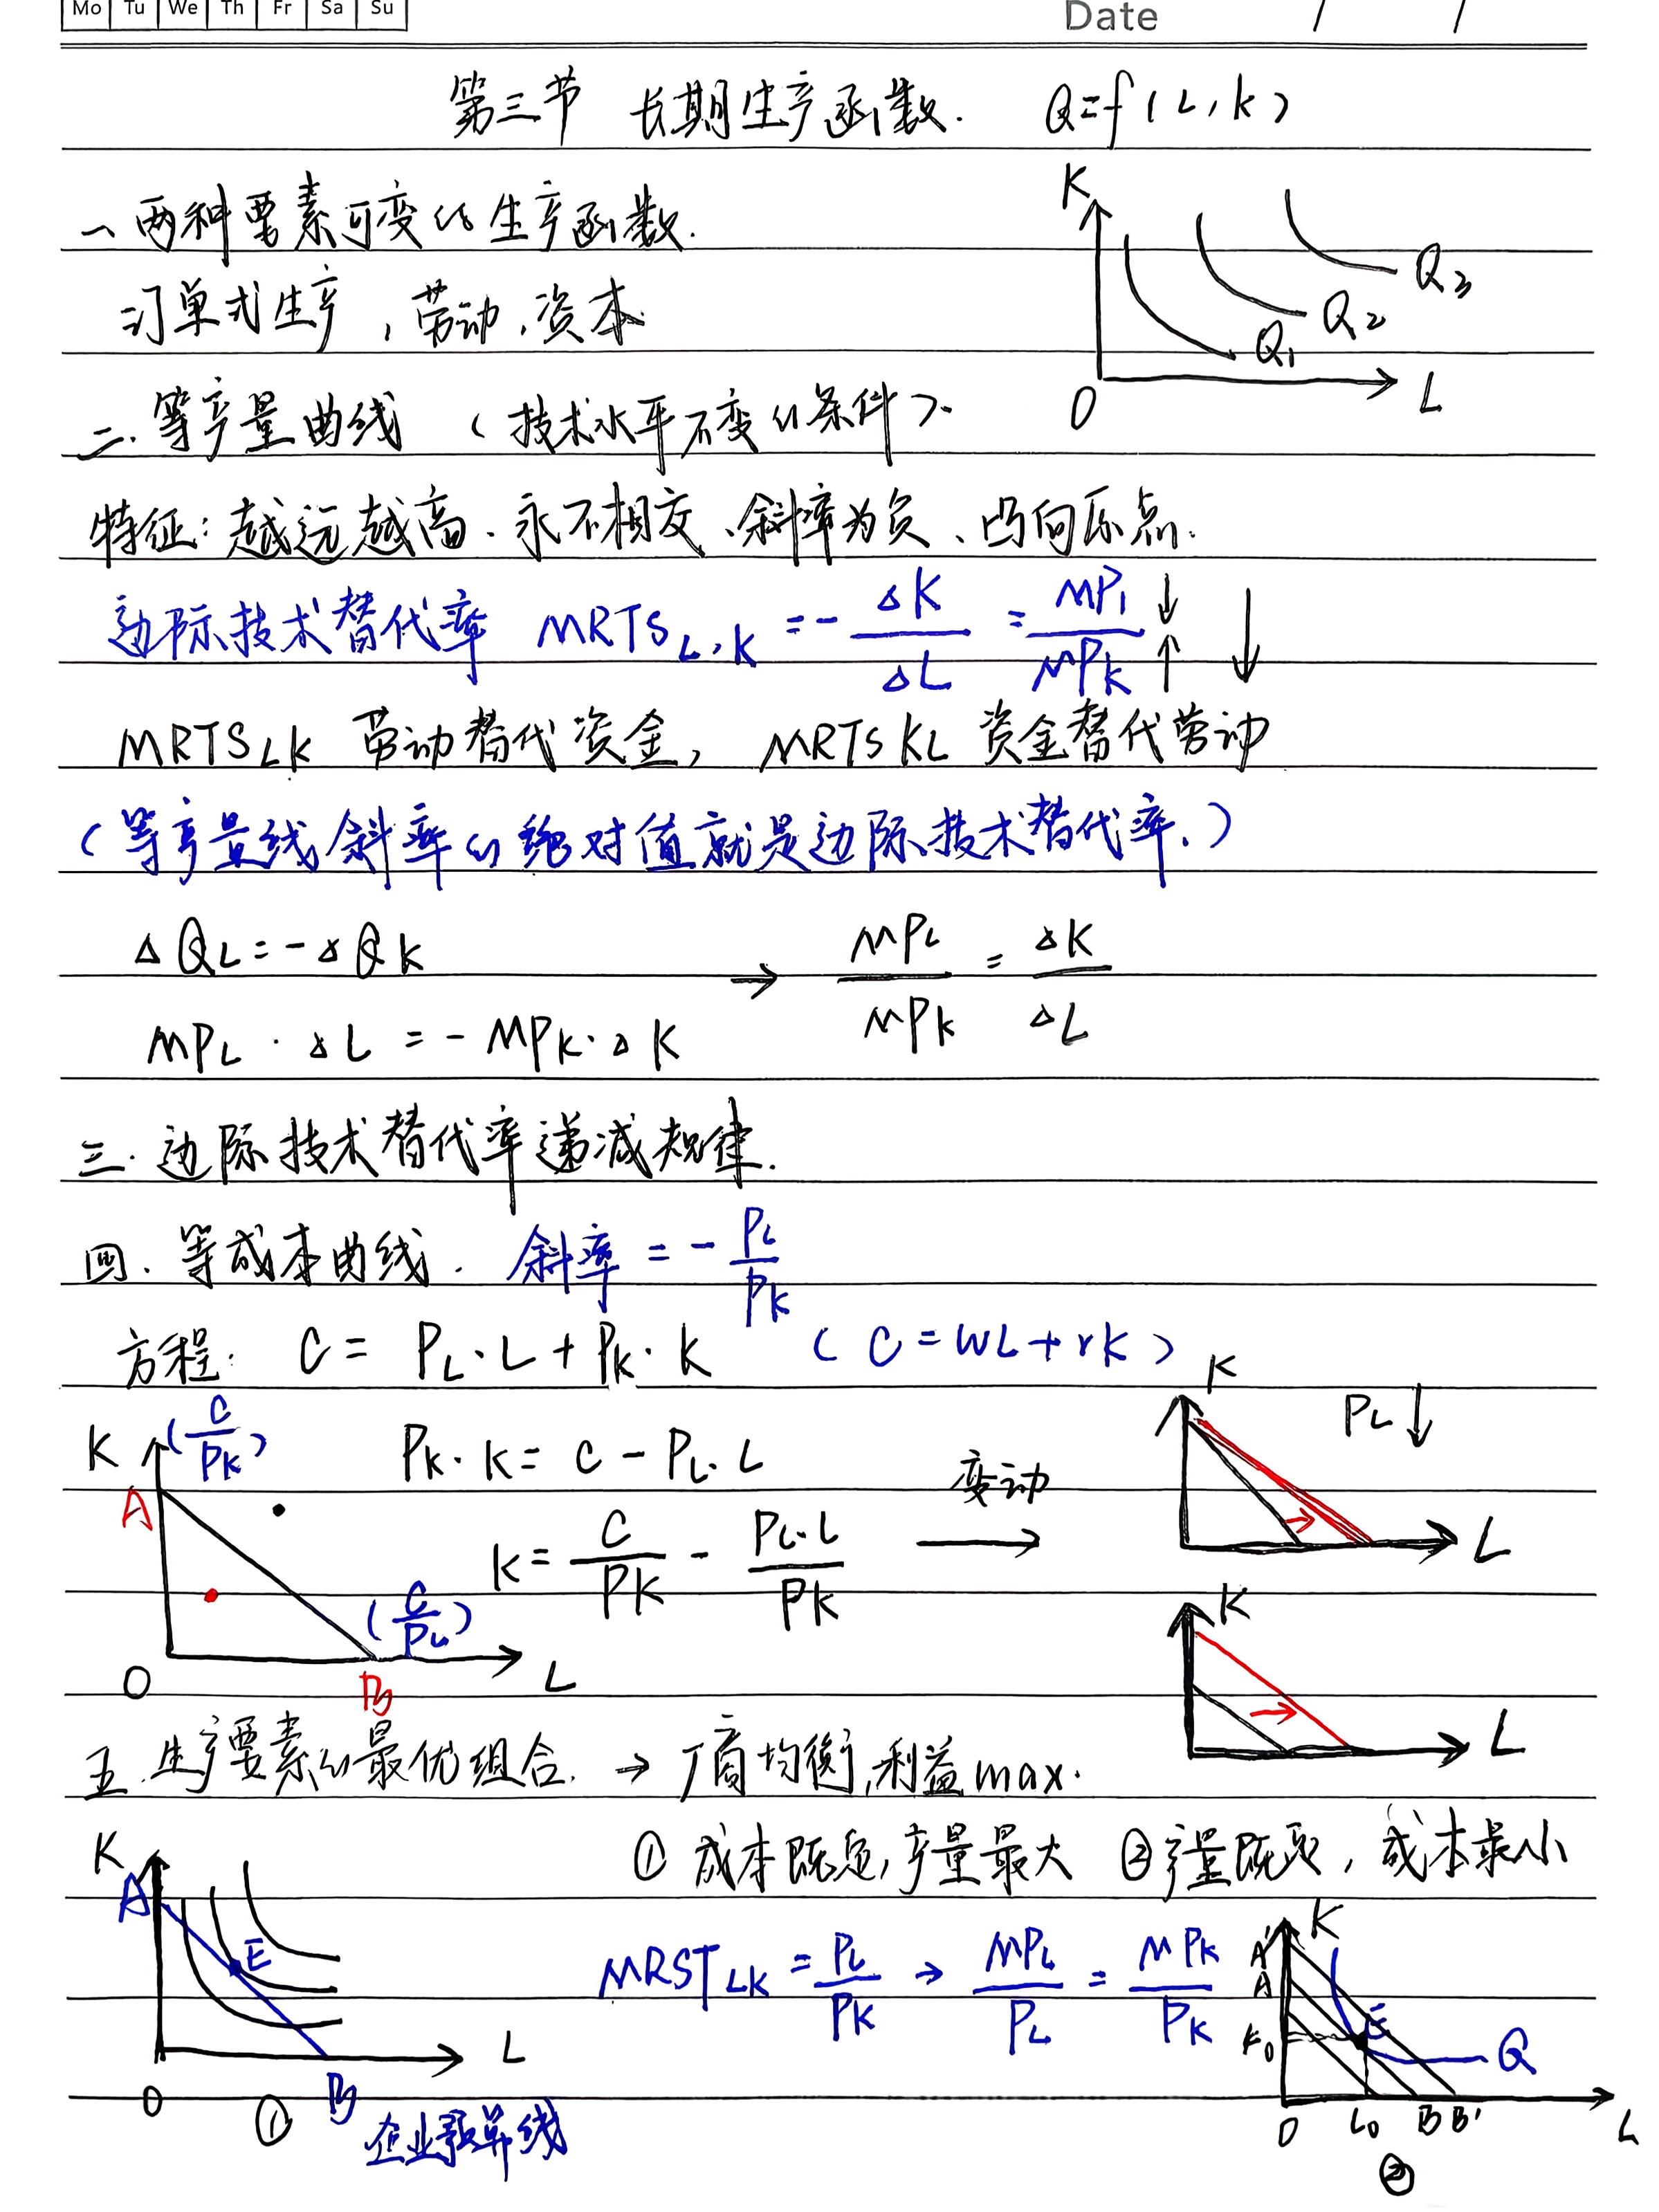 Mo Tu We Th Fr Sa Su
Date / /
第三节 长期生产函数. Q=f(L,K)
一、两种要素可变的生产函数.
订单式生产,劳动,资本.
K Q₁ Q₂ Q₃ O L
二.等产量曲线 (技术水平不变的条件).
特征:越远越高、永不相交、斜率为负、凸向原点.
边际技术替代率 MRTS L,K = - ΔK/ΔL = MPL↓/MPK↑ ↓
MRTS LK 劳动替代资金, MRTS KL 资金替代劳动
(等产量线斜率的绝对值就是边际技术替代率.)
ΔQL = -ΔQK
→ MPL/MPK = ΔK/ΔL
MPL·ΔL = -MPK·ΔK
三.边际技术替代率递减规律.
四.等成本曲线. 斜率 = - PL/PK
方程: C = PL·L + PK·K (C=wL+rK)
K (C/PK) A O B (C/PL) L
PK·K = C - PL·L
K = C/PK - PL·L/PK
变动 →
K PL↓ L
K L
五.生产要素的最优组合. → 厂商均衡,利益max.
① 成本既定,产量最大 ②产量既定,成本最小
K A E O B L ①
企业预算线
MRST LK = PL/PK → MPL/PL = MPK/PK
K A' A K₀ E Q O L₀ B B' L
②